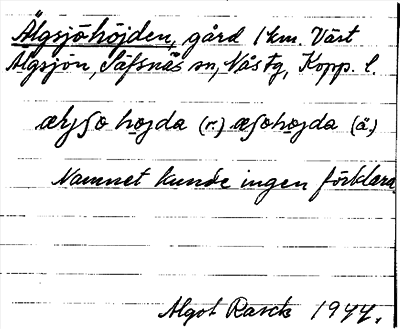 Älgsjöhöjden, gård 1 km. Väst
Älgsjön, Säfsnäs sn, Nås tg, Kopp. l.
æljʃo hojda (r.) æʃohojda (ä.)
Namnet kunde ingen förklara.
Algot Rasck 1944.